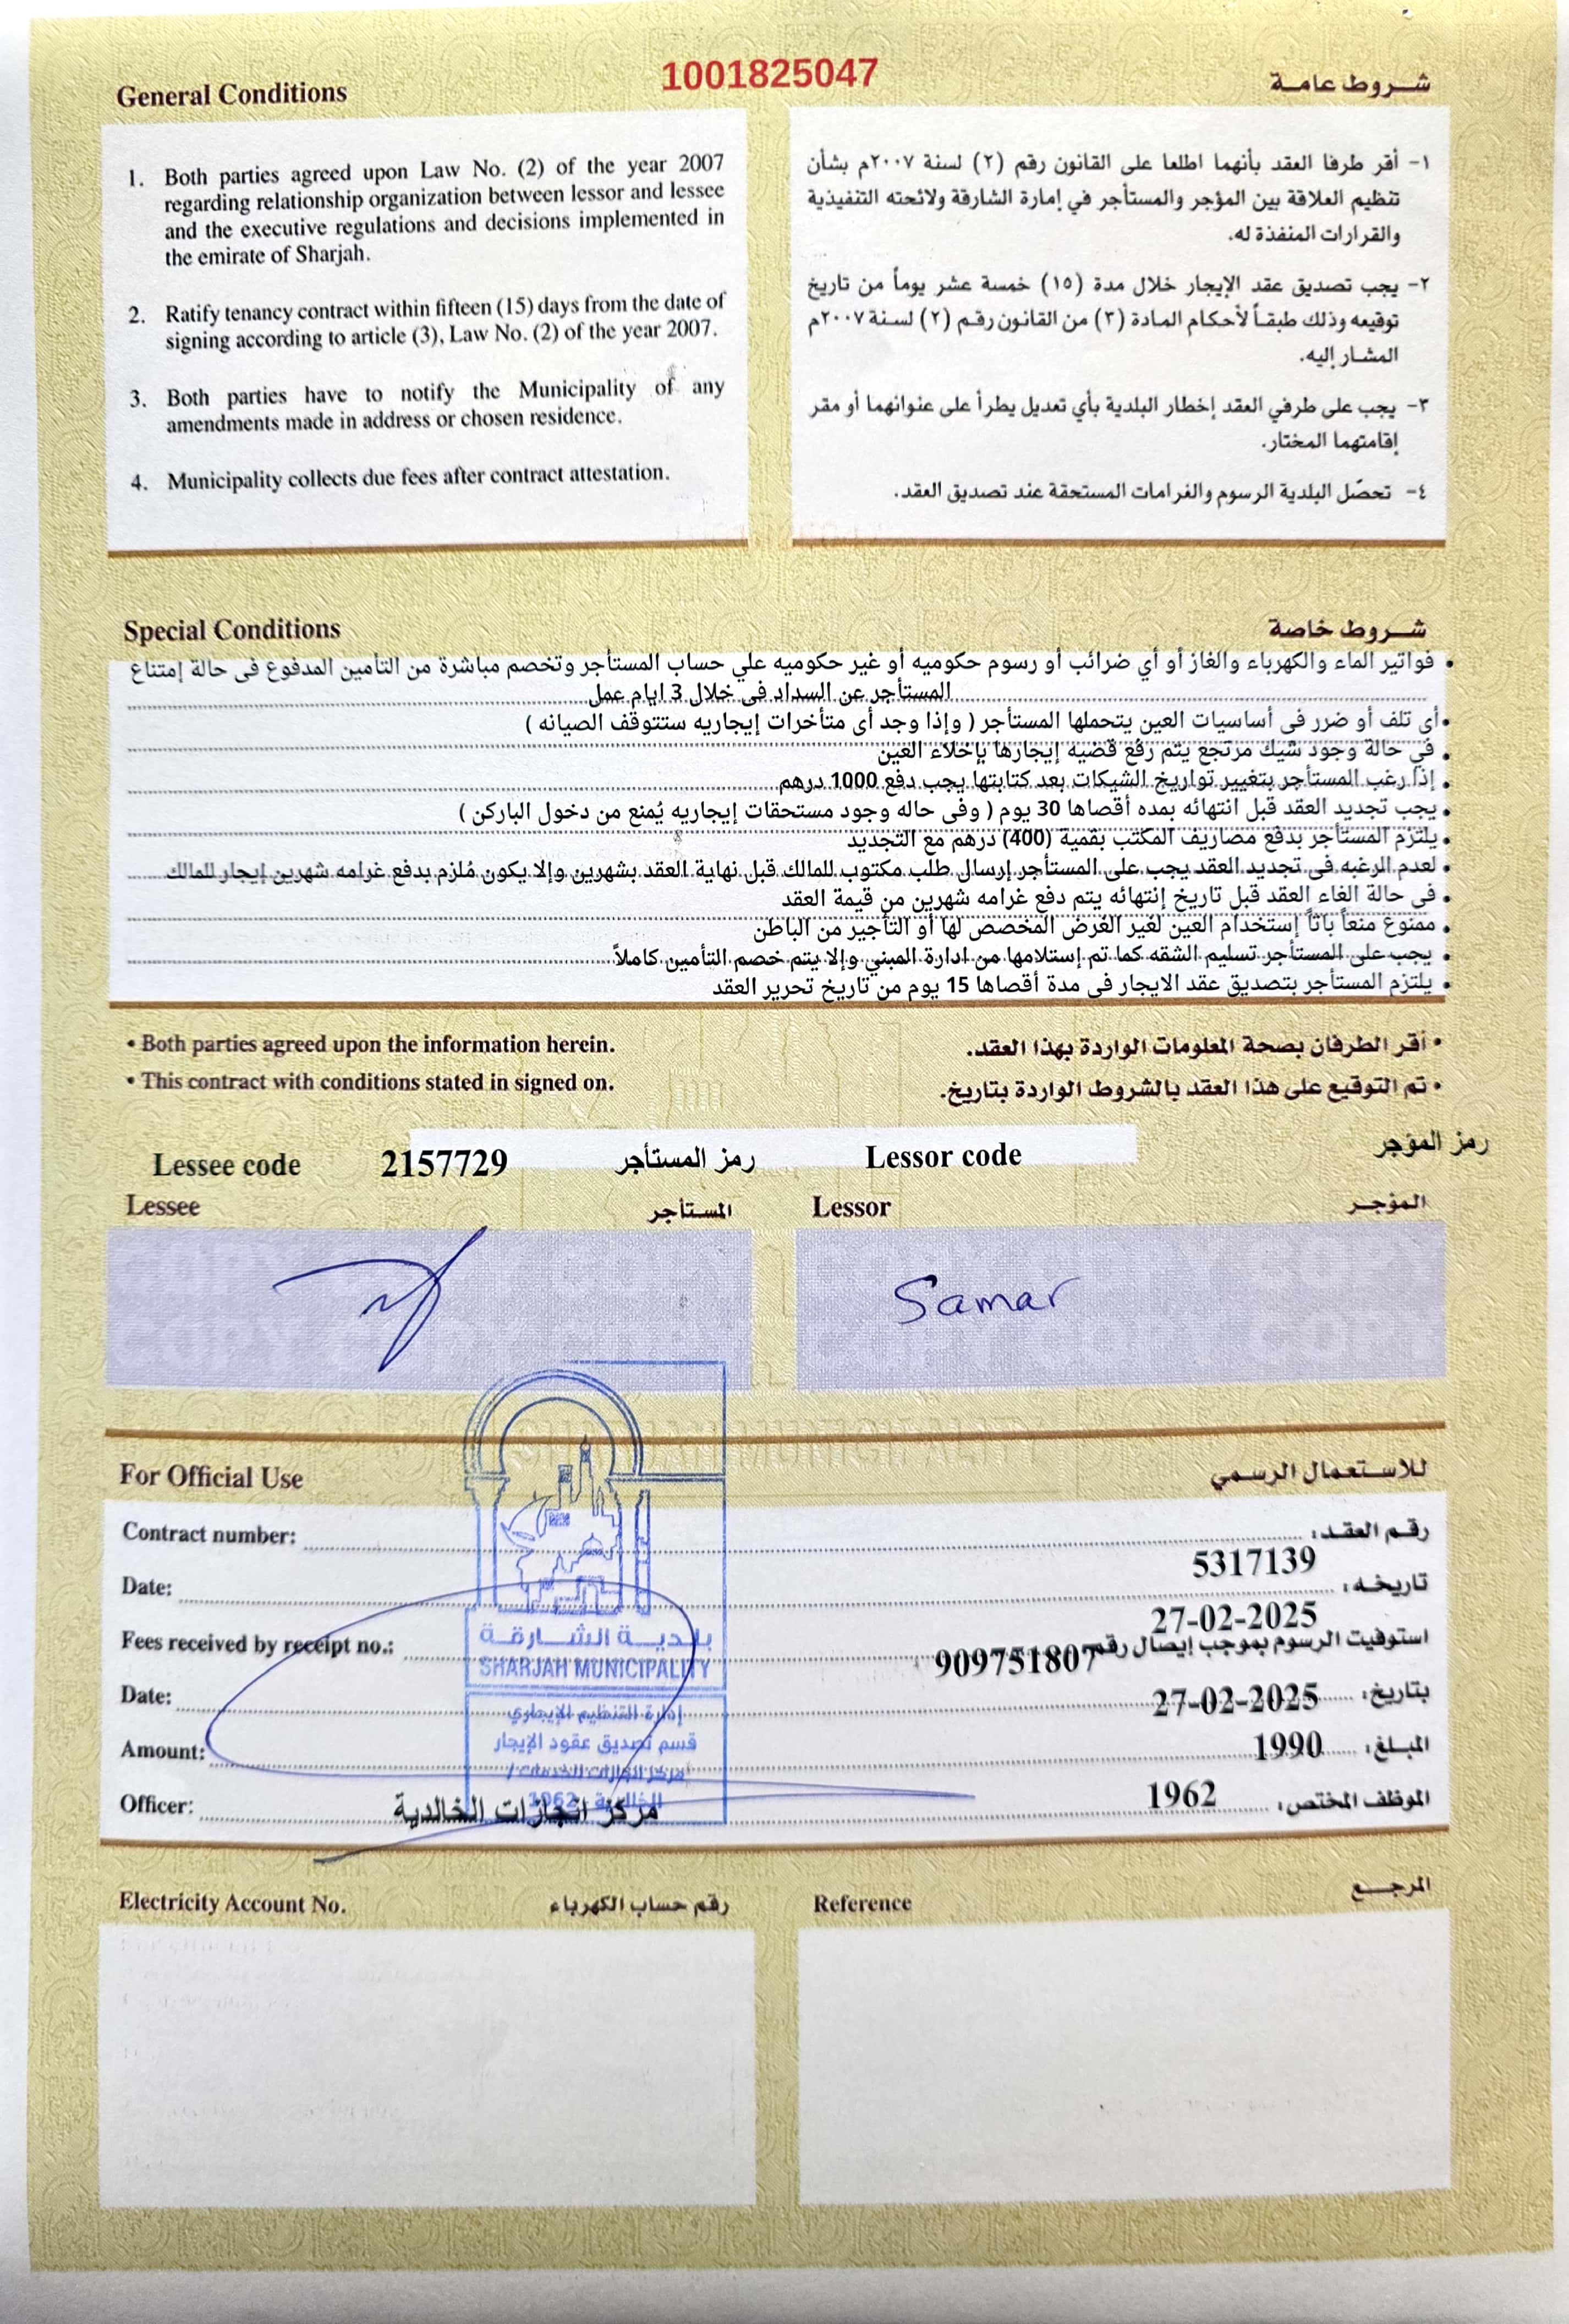 1001825047
General Conditions
شروط عامة
1. Both parties agreed upon Law No. (2) of the year 2007
regarding relationship organization between lessor and lessee
and the executive regulations and decisions implemented in
the emirate of Sharjah.
2. Ratify tenancy contract within fifteen (15) days from the date of
signing according to article (3), Law No. (2) of the year 2007.
3. Both parties have to notify the Municipality of any
amendments made in address or chosen residence.
4. Municipality collects due fees after contract attestation.
١- أقر طرفا العقد بأنهما اطلعا على القانون رقم (٢) لسنة ٢٠٠٧م بشأن
تنظيم العلاقة بين المؤجر والمستأجر في إمارة الشارقة ولائحته التنفيذية
والقرارات المنفذة له.
٢- يجب تصديق عقد الإيجار خلال مدة (١٥) خمسة عشر يوماً من تاريخ
توقيعه وذلك طبقاً لأحكام المادة (٣) من القانون رقم (٢) لسنة ٢٠٠٧م
المشار إليه.
٣- يجب على طرفي العقد إخطار البلدية بأي تعديل يطرأ على عنوانهما أو مقر
إقامتهما المختار.
٤- تحصّل البلدية الرسوم والغرامات المستحقة عند تصديق العقد.
Special Conditions
شروط خاصة
• فواتير الماء والكهرباء والغاز أو أي ضرائب أو رسوم حكوميه أو غير حكوميه علي حساب المستأجر وتخصم مباشرة من التأمين المدفوع فى حالة إمتناع
المستأجر عن السداد فى خلال 3 ايام عمل
• أى تلف أو ضرر فى أساسيات العين يتحملها المستأجر ( وإذا وجد أى متأخرات إيجاريه ستتوقف الصيانه )
• في حالة وجود شيك مرتجع يتم رفع قضيه إيجارها بإخلاء العين
• إذا رغب المستأجر بتغيير تواريخ الشيكات بعد كتابتها يجب دفع 1000 درهم
• يجب تجديد العقد قبل انتهائه بمده أقصاها 30 يوم ( وفى حاله وجود مستحقات إيجاريه يُمنع من دخول الباركن )
• يلتزم المستأجر بدفع مصاريف المكتب بقمية (400) درهم مع التجديد
• لعدم الرغبه فى تجديد العقد يجب على المستأجر إرسال طلب مكتوب للمالك قبل نهاية العقد بشهرين وإلا يكون مُلزم بدفع غرامه شهرين إيجار للمالك
• فى حالة الغاء العقد قبل تاريخ إنتهائه يتم دفع غرامه شهرين من قيمة العقد
• ممنوع منعاً باتاً إستخدام العين لغير الغرض المخصص لها أو التأجير من الباطن
• يجب على المستأجر تسليم الشقه كما تم إستلامها من ادارة المبني وإلا يتم خصم التأمين كاملاً
• يلتزم المستأجر بتصديق عقد الايجار فى مدة أقصاها 15 يوم من تاريخ تحرير العقد
• Both parties agreed upon the information herein.
• أقر الطرفان بصحة المعلومات الواردة بهذا العقد.
• This contract with conditions stated in signed on.
• تم التوقيع على هذا العقد بالشروط الواردة بتاريخ.
Lessee code 2157729 رمز المستأجر Lessor code رمز المؤجر
Lessee المستأجر Lessor المؤجر
Samar
SHARJAH MUNICIPALITY
For Official Use للاستعمال الرسمي
Contract number: رقم العقد:
5317139
Date: تاريخه:
27-02-2025
Fees received by receipt no.: استوفيت الرسوم بموجب إيصال رقم
909751807
Date: 27-02-2025 بتاريخ:
Amount: 1990 المبلغ:
Officer: 1962 الموظف المختص:
مركز انجازات الخالدية
بلدية الشارقة
SHARJAH MUNICIPALITY
إدارة التنظيم الإيجاري
قسم تصديق عقود الإيجار
مركز انجازات الخدمات /
الخالدية 1962
Electricity Account No. رقم حساب الكهرباء Reference المرجع